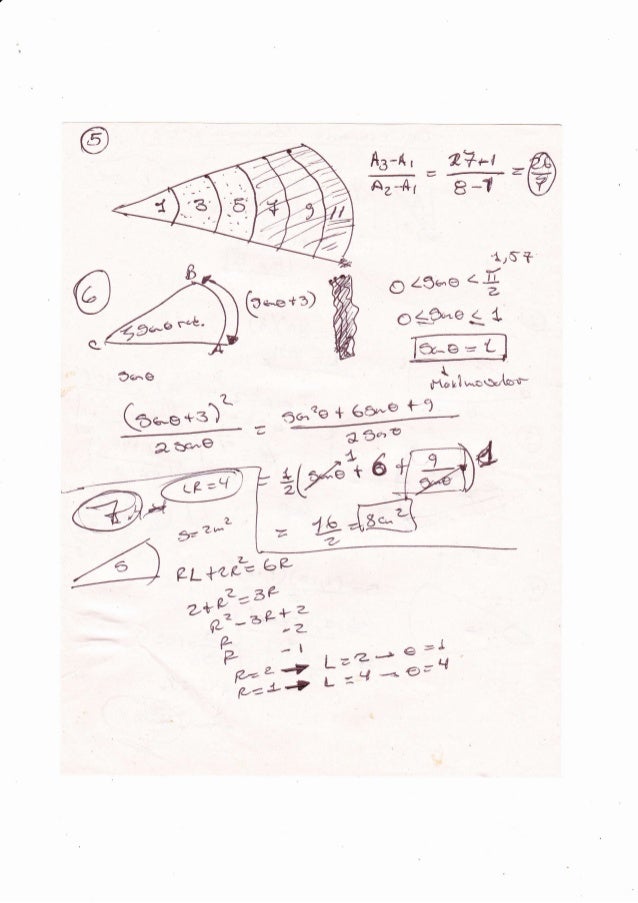 5
1 3 5 7 9 11
A3-A1 / A2-A1 = 27+1 / 8-1 = 26/7
6
B
(senθ+3)
C
senθ rad.
A
senθ
1,57
0 < senθ < π/2
0 ≤ senθ ≤ 1
senθ = 1
(senθ+3)² / 2senθ = sen²θ + 6senθ + 9 / 2senθ
= 1/2 (senθ + 6 + 9/senθ) 1
1
= 16/2 = 8cm²
7
LR=4
S=2m²
S
RL+2R²=6R
2+R²=3R
R²-3R+2
R -2
R -1
R=2 → L=2 → θ=1
R=1 → L=4 → θ=4